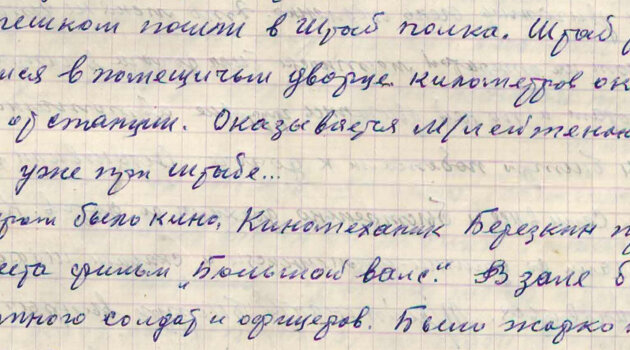 пешком пошли в Штаб полка. Штаб
лися в помещичьем дворце километров ок
от станции. Оказывается М/лейтенан
уже при штабе...
было кино. Киномеханик Березкин
фильм „Большой вальс". В зале б
много солдат и офицеров. Было жарко